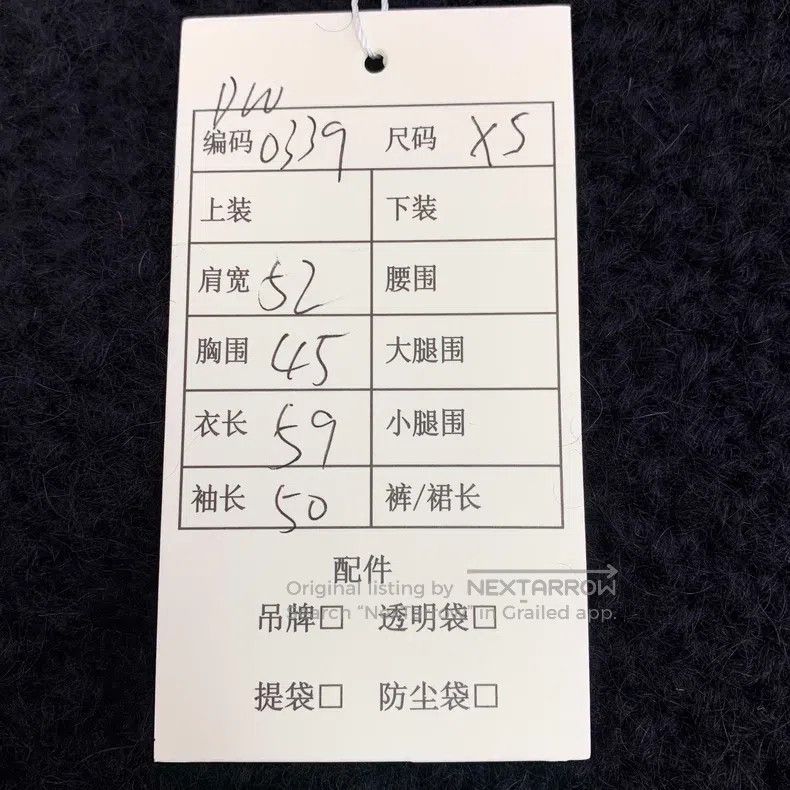 DW
编码 0339 尺码 XS
上装 下装
肩宽 52 腰围
胸围 45 大腿围
衣长 59 小腿围
袖长 50 裤/裙长
配件
Original listing by NEXTARROW
Search “NextArrow” in Grailed app.
吊牌□ 透明袋□
提袋□ 防尘袋□